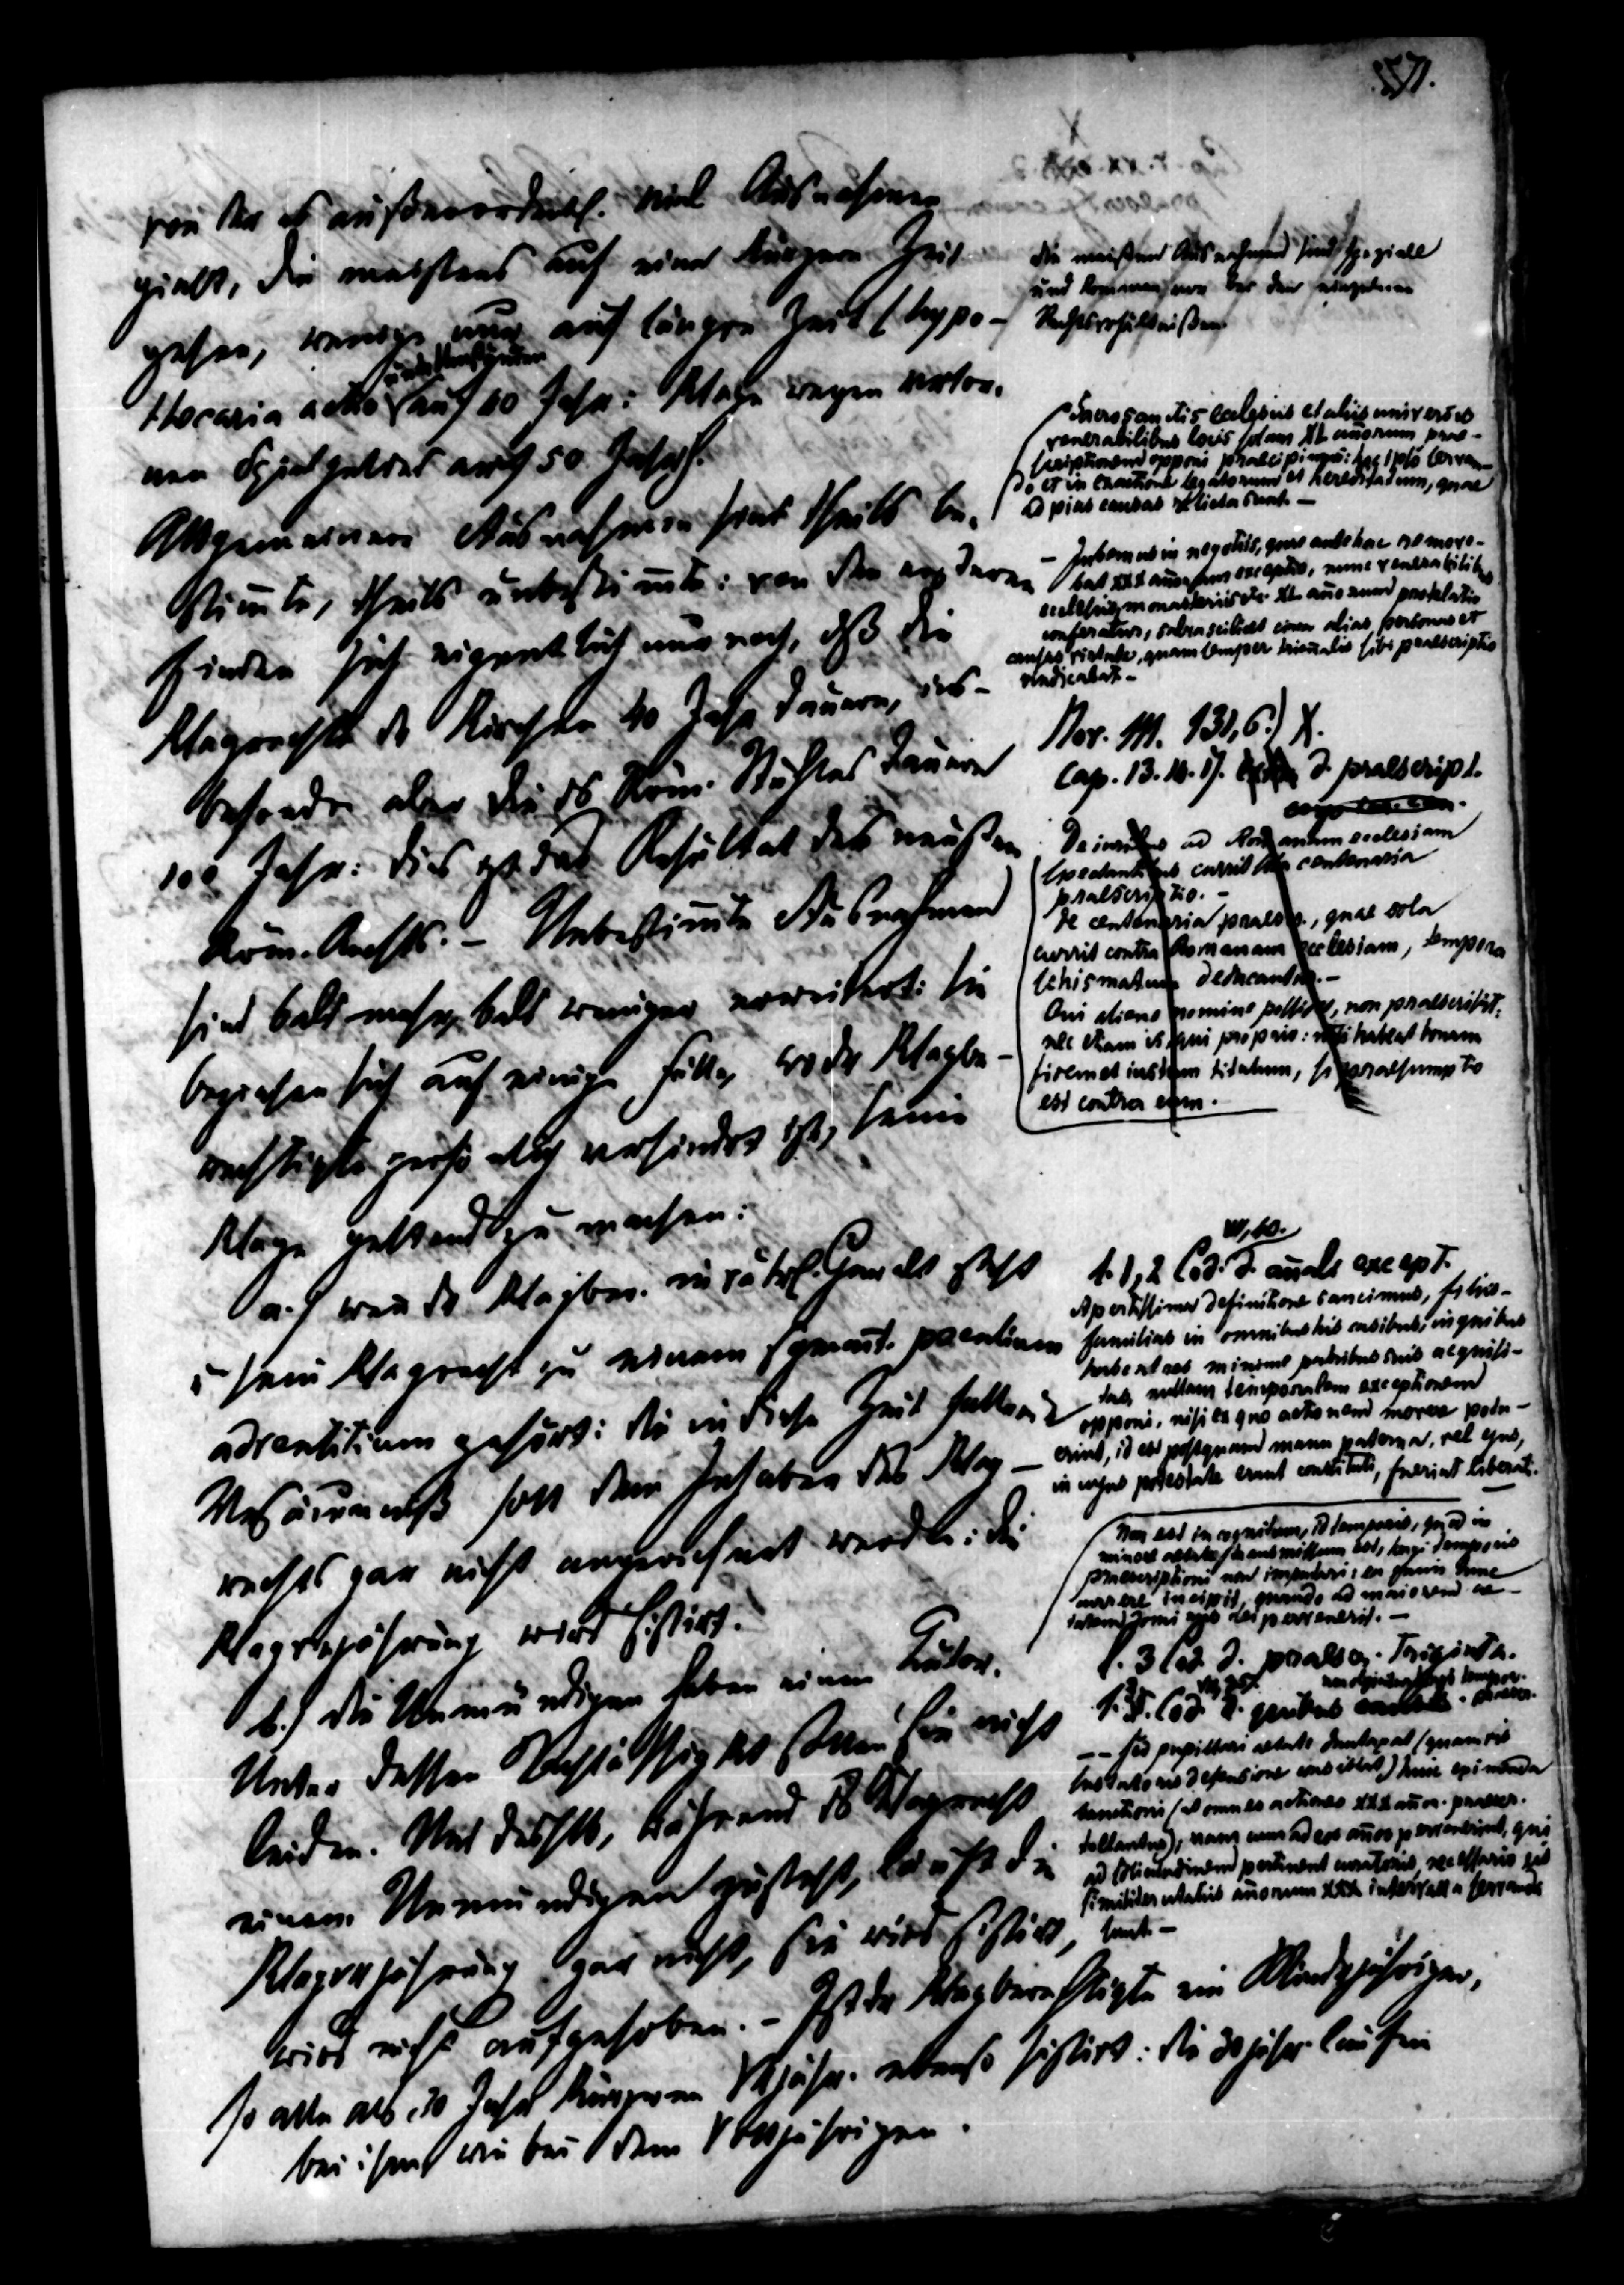 571.
von der es außerordentl. viel Ausnahmen
giebt, die meistens auf eine kürzere Zeit
gehen, wenige nur auf längere Zeit (hypo-
thecaria actio unter Umständen auf 40 Jahr: Klage wegen verlor-
nen Spielgeldes auf 50 Jahre).
Allgemeinere Ausnahmen sind theils be-
stim̄te, theils unbestim̄te: von den ersteren
finden sich eigentlich nur noch, daß die
Klagrechte der Kirchen 40 Jahr dauern, ins-
besondre aber die des Röm. Stuhles dauern
100 Jahr: dies ist das Resultat des neusten
Röm. Rechts. – Unbestim̄te Ausnahmen
sind bald mehr, bald weniger erweitert: sie
beziehen sich auf einige Fälle, wo der Klagbe-
rechtigte persönlich verhindert ist, seine
Klage geltend zu machen:
a.) wenn der Klagber. in vätrl. Gewalt steht
u. sein Klagrecht zu einem s. genan̄t. peculium
adventitium gehört: die in diese Zeit fallende
Versäumniß soll dem Inhaber des Klag-
rechts gar nicht angerechnet werden: die
Klagverjährung wird sistirt.
b.) die Unmündigen haben einen Tutor.
Unter dessen Nachlässigkeit sollen sie nicht
leiden. Und deshalb, während das Klagrecht
einem Unmündigen zusteht, läuft die
Klagverjährung gar nicht, sie wird sistirt,
wird nicht aufgehoben. – Ist der Klagberechtigte ein Minderjähriger,
so alle als 30 Jahr kürzeren Verjähr. ebenso sistirt: die 30jähr. laufen
bei ihm wie bei dem Volljährigen.
die meisten Ausnahmen sind spezielle
und kommen vor bei den einzelnen
Rechtsverhältnißen
Sacrosanctis ecclesiis et aliis universis
venerabilibus locis solam XL annorum prae-
scriptionem opponi praecipimus: hoc ipso servan-
do et in exactione legatorum et hereditatum, quae
ad pias causas relicta sunt. –
– Iubemus in negotiis, quae antehac remove-
bat XXX annorum exceptio, nunc venerabilibus
ecclesiis, monasteriis etc. XL annorum protelatio
conferatur, salva scilicet circa alias personas et
causas virtute, quam semper triennalis sibi praescriptio
vindicabat –
Nov. 111. 131,6.) X.
cap. 13. 14. 17. d. praescript.
De iuribus ad Romanam ecclesiam
spectantibus currit centenaria
praescriptio. –
De centenaria praescr., quae sola
currit contra Romanam ecclesiam, tempora
schismatum deducantur. –
Qui alieno nomine possidet, non praescribit:
nec etiam is, qui proprio: nisi habeat bonam
fidem et iustum titulum, si praesumptio
est contra eum.
VII, 40.
l. 1, 2 Cod. d. annali except.
Apertissima definitione sancimus, filios-
familias in omnibus his casibus, in quibus
habeat res minime patribus suis acquisi-
tas, nullam temporalem exceptionem
opponi, nisi ex quo actionem movere potu-
erint, id est postquam manu paterna, vel eius,
in cuius potestate erant constituti, fuerint liberati. –
Non est incognitum, id temporis, quod in
minore aetate transmissum est, longi temporis
praescriptioni non imputari; ea enim tunc
currere incipit, quando ad maiorem ae-
tatem domi rei pervenerit. –
l. 3 Cod. d. praescr. triginta.
l. 3. Cod. d. quibus non obiicitur longi tempor. praescr.
– – sed pupillari aetate duntaxat (quamvis
sub tutoris defensione consistat) huic eximenda
sanctioni (ut omnes actiones XXX annor. praescr.
tollantur); nam cum ad eos annos pervenerint, qui
ad solicitudinem pertinent curatoris, necessario eis
similiter ut aliis annorum XXX intervalla servanda
sunt. –